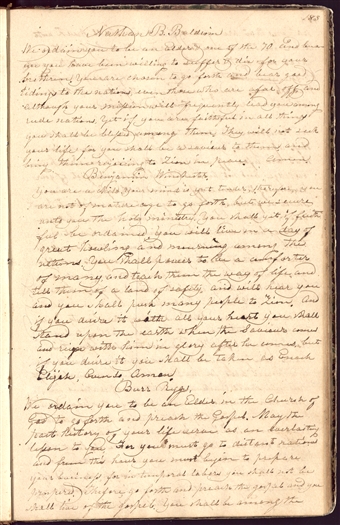 183
Nathan B. Baldwin
We ordain you to be an elder & one of the 70. Inasmuch
as you have been willing to suffer & die for your
brethren, you are chosen to go forth and bear good
tidings to the nations even those who are afar off, and
although your mission will frequently lead you among
rude nations, yet if you are faithful in all things
you shall be blessed among them, They will not seek
your life, for you shall be a saviour to them and
bring them rejoicing to Zion in peace, Amen
Benjamin Winchester
You are a child, your mind is yet tender, you
are not of mature age to go forth,
the holy ministry, You shall yet, if faith
ful be ordained, you will live in a day of
great howling and mourning among the
nations. You shall power to be a comforter
of many, and teach them the way of life and
tell them of a land of safety, and will hear you
and you shall push many people to Zion, And
if you desire it with all your heart you shall
stand upon the earth when the Saviour comes
and with him in glory after he comes, but
if you desire it you shall be taken as Enoch
Elijah, Amen
Burr Riggs,
We ordain you to be an Elder in the Church of
God to go forth and preach the Gospel, May the
past history of your life serve as an everlasting
lesson to you For you must go to distant nations
and from this hour you must begin to prepare
your business, for in temporal labors you shall not be
prospered, Therefore go forth and preach the gospel and you
shall live of the gospel, you shall be among the